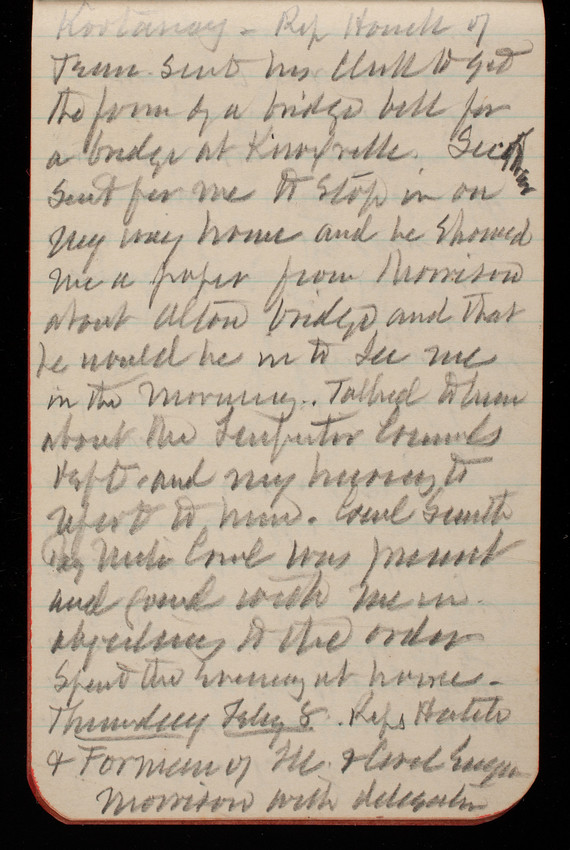 Kootanay - Rep Houck of
Tenn. sent his Clerk to get
the form of a bridge bill for
a bridge at Knoxville. Secty
Sent for me to Stop in on
my way home and he Showed
me a paper from Morrison
about Alton bridge and that
he would be in to See me
in the Morning. Talked to him
about the Inspector Genls
Dept. and my having to
report to him. Genl Smith
Genl was present
and joined with me in
objections to the order
Spent the Evening at home -
Thursday Feby 8. Reps Hatch
& Forman of Ill. &
Morrison with delegation